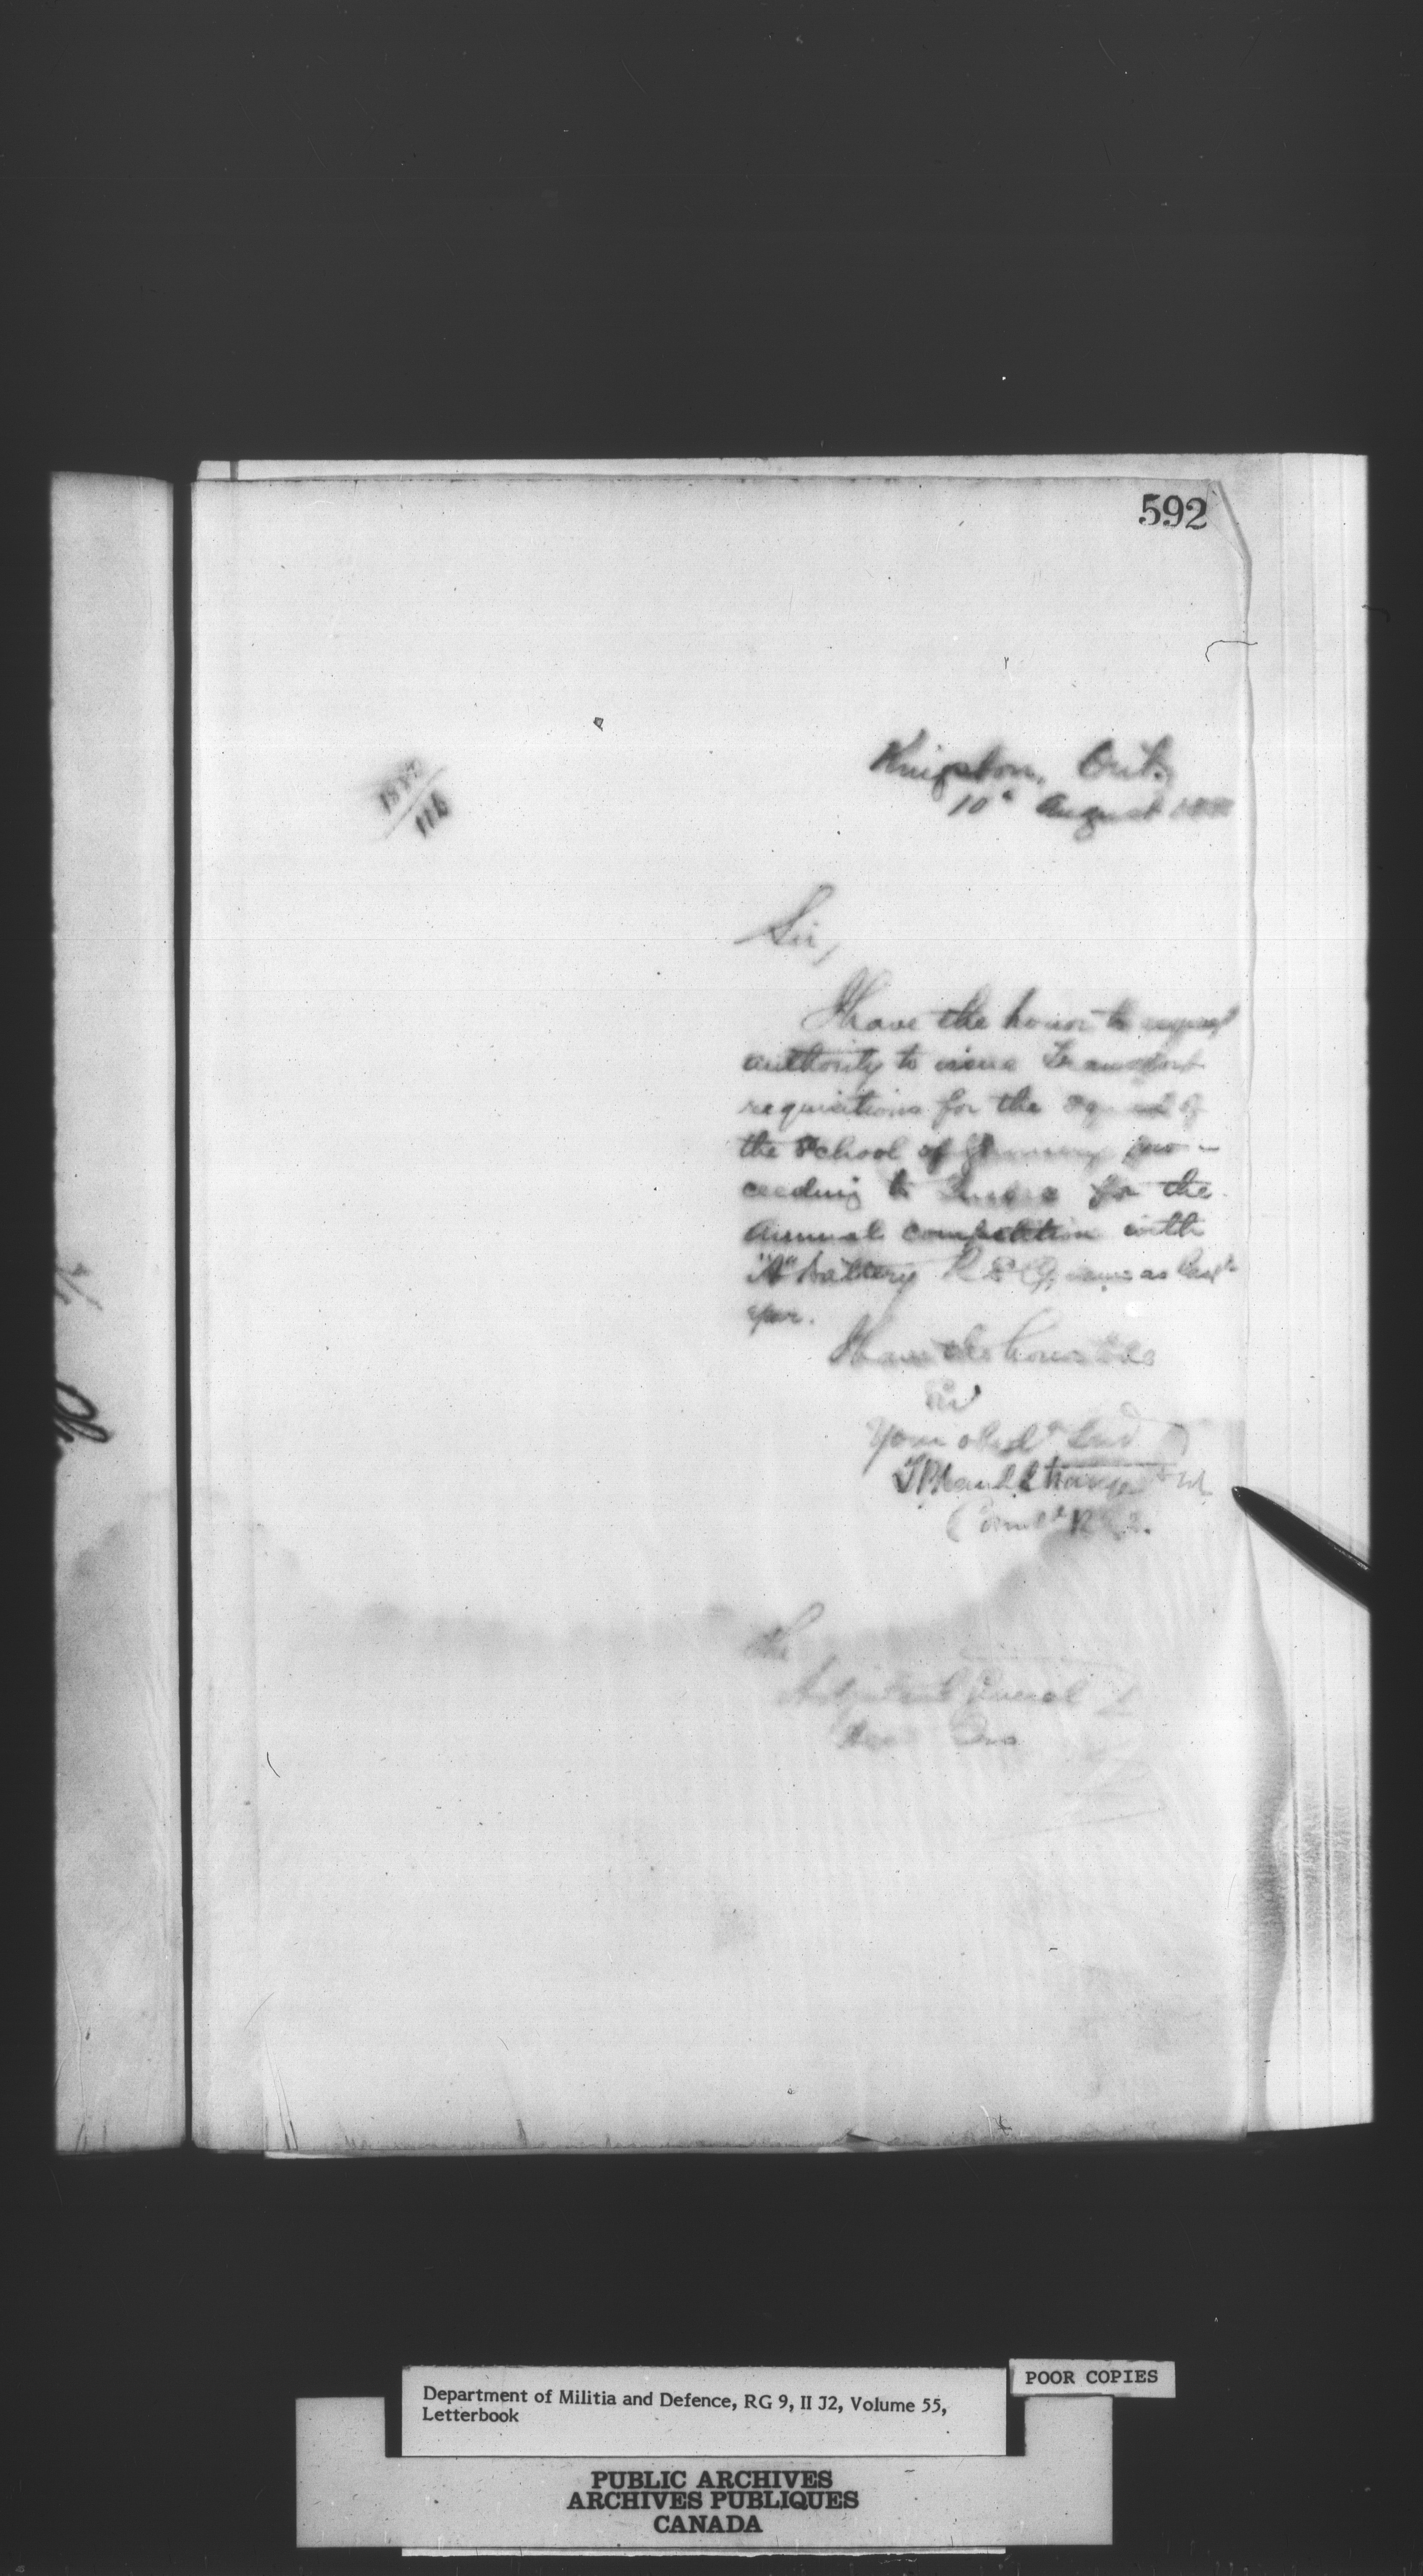 592
Kingston, Ont.
10th August
Sir,
I have the honor to request
authority to issue Transport
requisitions for the squad of
the School of Gunnery pro-
ceeding to for the
annual competition with
"A" Battery same as last
year.
I have the honor to be
Sir
Your obedt Servt
T B Strange
Comdt
The
Adjutant General
POOR COPIES
Department of Militia and Defence, RG 9, II J2, Volume 55,
Letterbook
PUBLIC ARCHIVES
ARCHIVES PUBLIQUES
CANADA